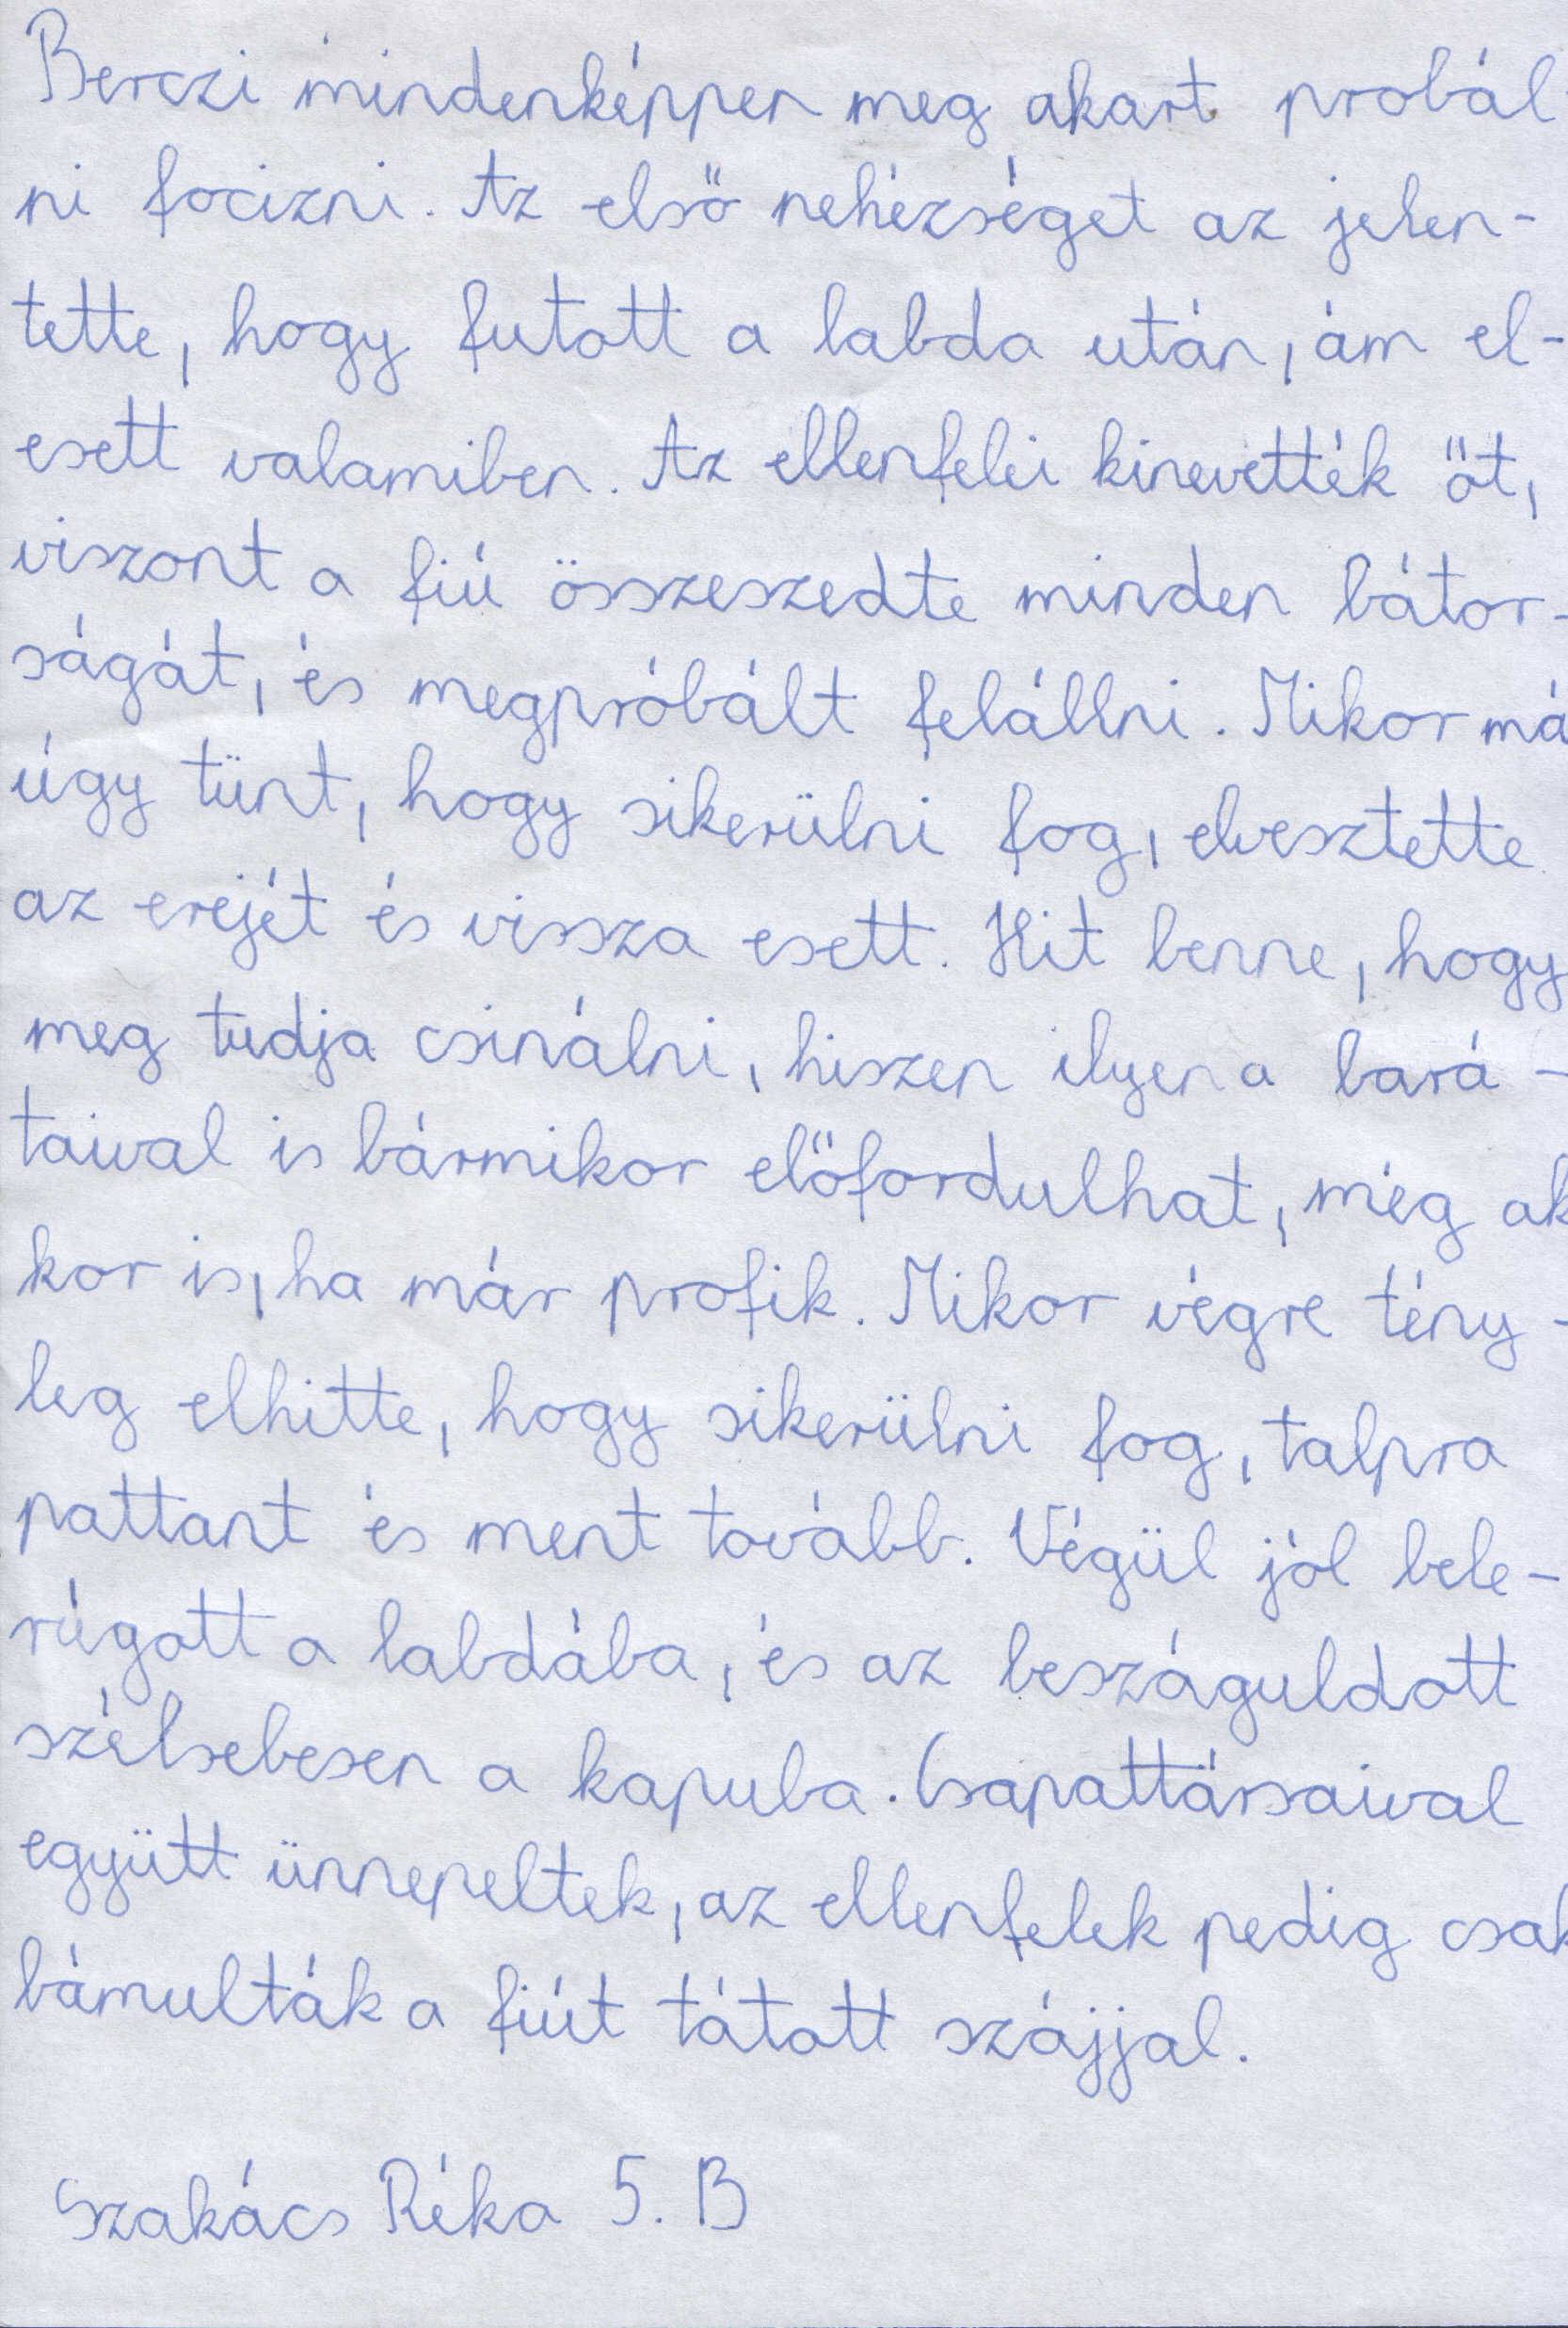 Berczi mindenképpen meg akart probál-
ni focizni. Az első nehézséget az jelen-
tette, hogy futott a labda után, ám el-
esett valamiben. Az ellenfelei kinevették őt,
viszont a fiú összeszedte minden bátor-
ságát, és megpróbált felállni. Mikor má
úgy tünt, hogy sikerülni fog, elvesztette
az erejét és vissza esett. Hit benne, hogy
meg tudja csinálni, hiszen ilyen a bará-
taival is bármikor előfordulhat, még ak
kor is, ha már profik. Mikor végre tény-
leg elhitte, hogy sikerülni fog, talpra
pattant és ment tovább. Végül jól bele-
rúgott a labdába, és az beszáguldott
szélsebesen a kapuba. Csapattársaival
együtt ünnepeltek, az ellenfelek pedig csak
bámulták a fiút tátott szájjal.
Szakács Réka 5. B